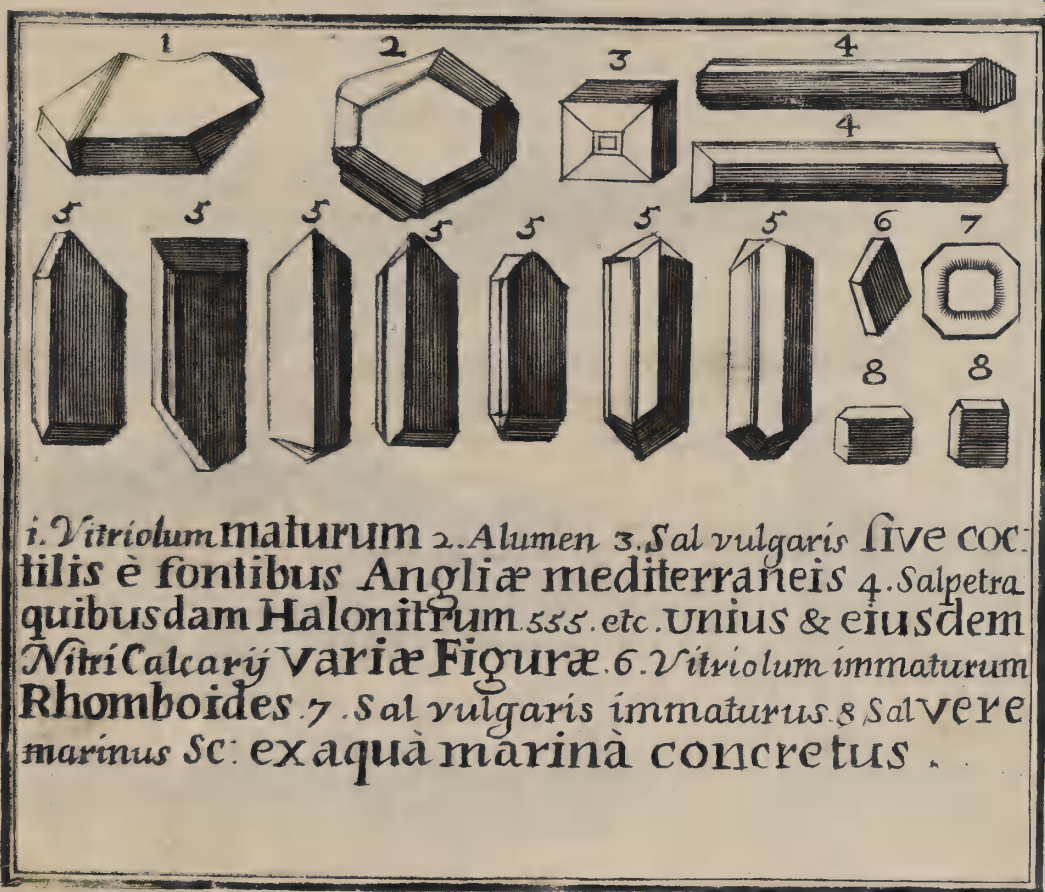 1 2 3 4
4
5 5 5 5 5 5 5 6 7
8 8
i. Vitriolum maturum 2. Alumen 3. Sal vulgaris ſive coc:
tilis è fontibus Angliæ mediterraneis 4. Salpetra
quibusdam Halonitrum 555. etc. Unius & eiusdem
Nitri Calcarij Variæ Figuræ. 6. Vitriolum immaturum
Rhomboides. 7. Sal vulgaris immaturus. 8 Sal vere
marinus Sc: ex aquà marinà concretus.